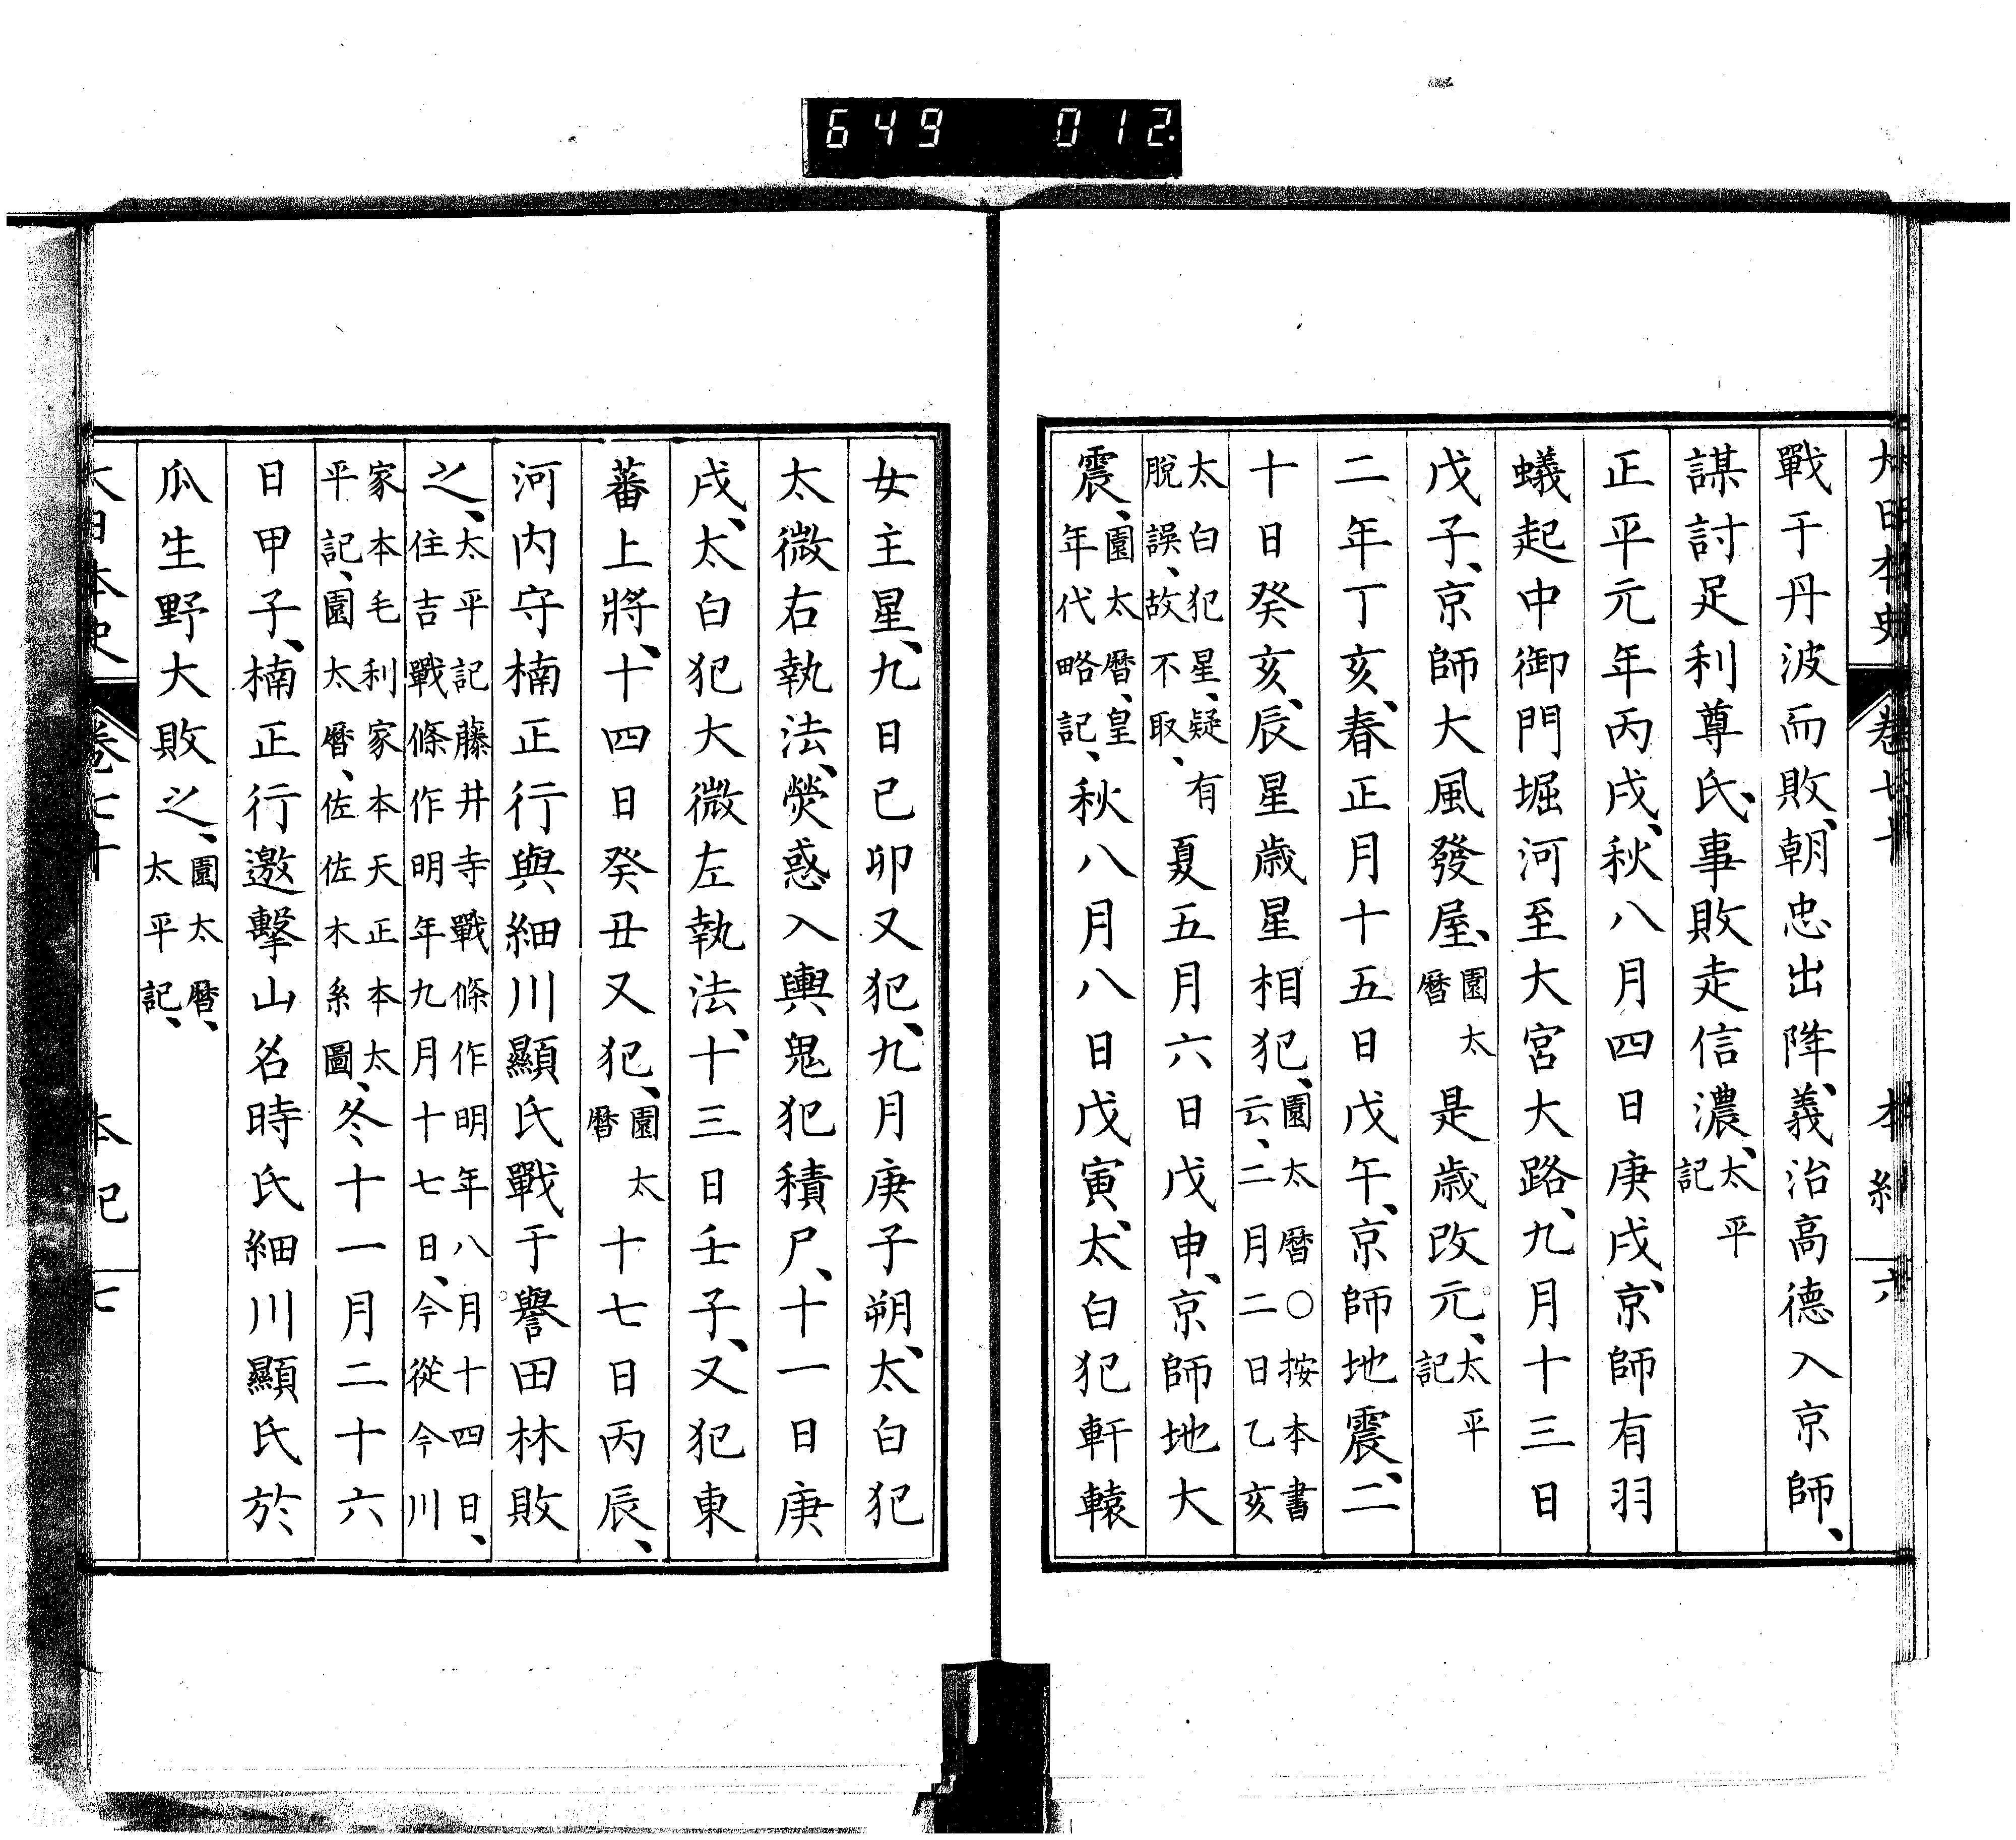 649 012
大日本史 卷七十 本紀 六
戰于丹波而敗、朝忠出降、義治高德入京師、
謀討足利尊氏、事敗走信濃、太平記
正平元年丙戌、秋八月四日庚戌、京師有羽
蟻起中御門堀河至大宮大路、九月十三日
戊子、京師大風發屋、園太曆 是歲改元、太平記
二年丁亥、春正月十五日戊午、京師地震、二
十日癸亥、辰星歲星相犯、園太曆○按本書云、二月二日乙亥
太白犯星、疑有脫誤、故不取、 夏五月六日戊申、京師地大
震、園太曆、皇年代略記、 秋八月八日戊寅、太白犯軒轅
女主星、九日己卯又犯、九月庚子朔、太白犯
太微右執法、熒惑入輿鬼犯積尸、十一日庚
戌、太白犯大微左執法、十三日壬子、又犯東
蕃上將、十四日癸丑又犯、園太曆 十七日丙辰、
河內守楠正行與細川顯氏戰于譽田林敗
之、太平記藤井寺戰條作明年八月十四日、住吉戰條作明年九月十七日、今從今川
家本毛利家本天正本太平記、園太曆、佐佐木系圖、 冬十一月二十六
日甲子、楠正行邀擊山名時氏細川顯氏於
瓜生野大敗之、園太曆、太平記、
大日本史 卷七十 本紀 七